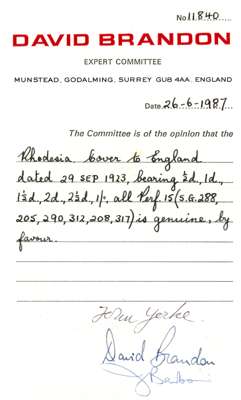 No. 11840
DAVID BRANDON
EXPERT COMMITTEE
MUNSTEAD, GODALMING, SURREY GU8 4AA, ENGLAND
Date 26-6-1987
The Committee is of the opinion that the
Rhodesia. Cover to England
dated 29 SEP 1923, bearing ½d, 1d,
1½d, 2d, 2½d, 1/-. all Perf 15 (S.G. 288,
205, 290, 312, 208, 317) is genuine, by
favour.
John Yorke.
David Brandon